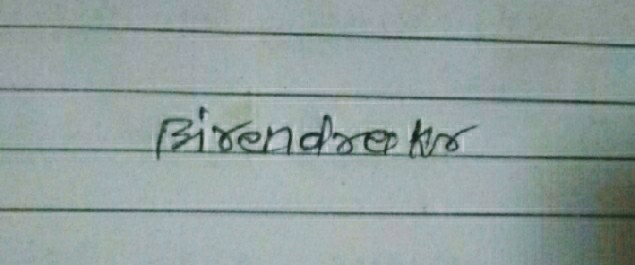 Birendra Kr